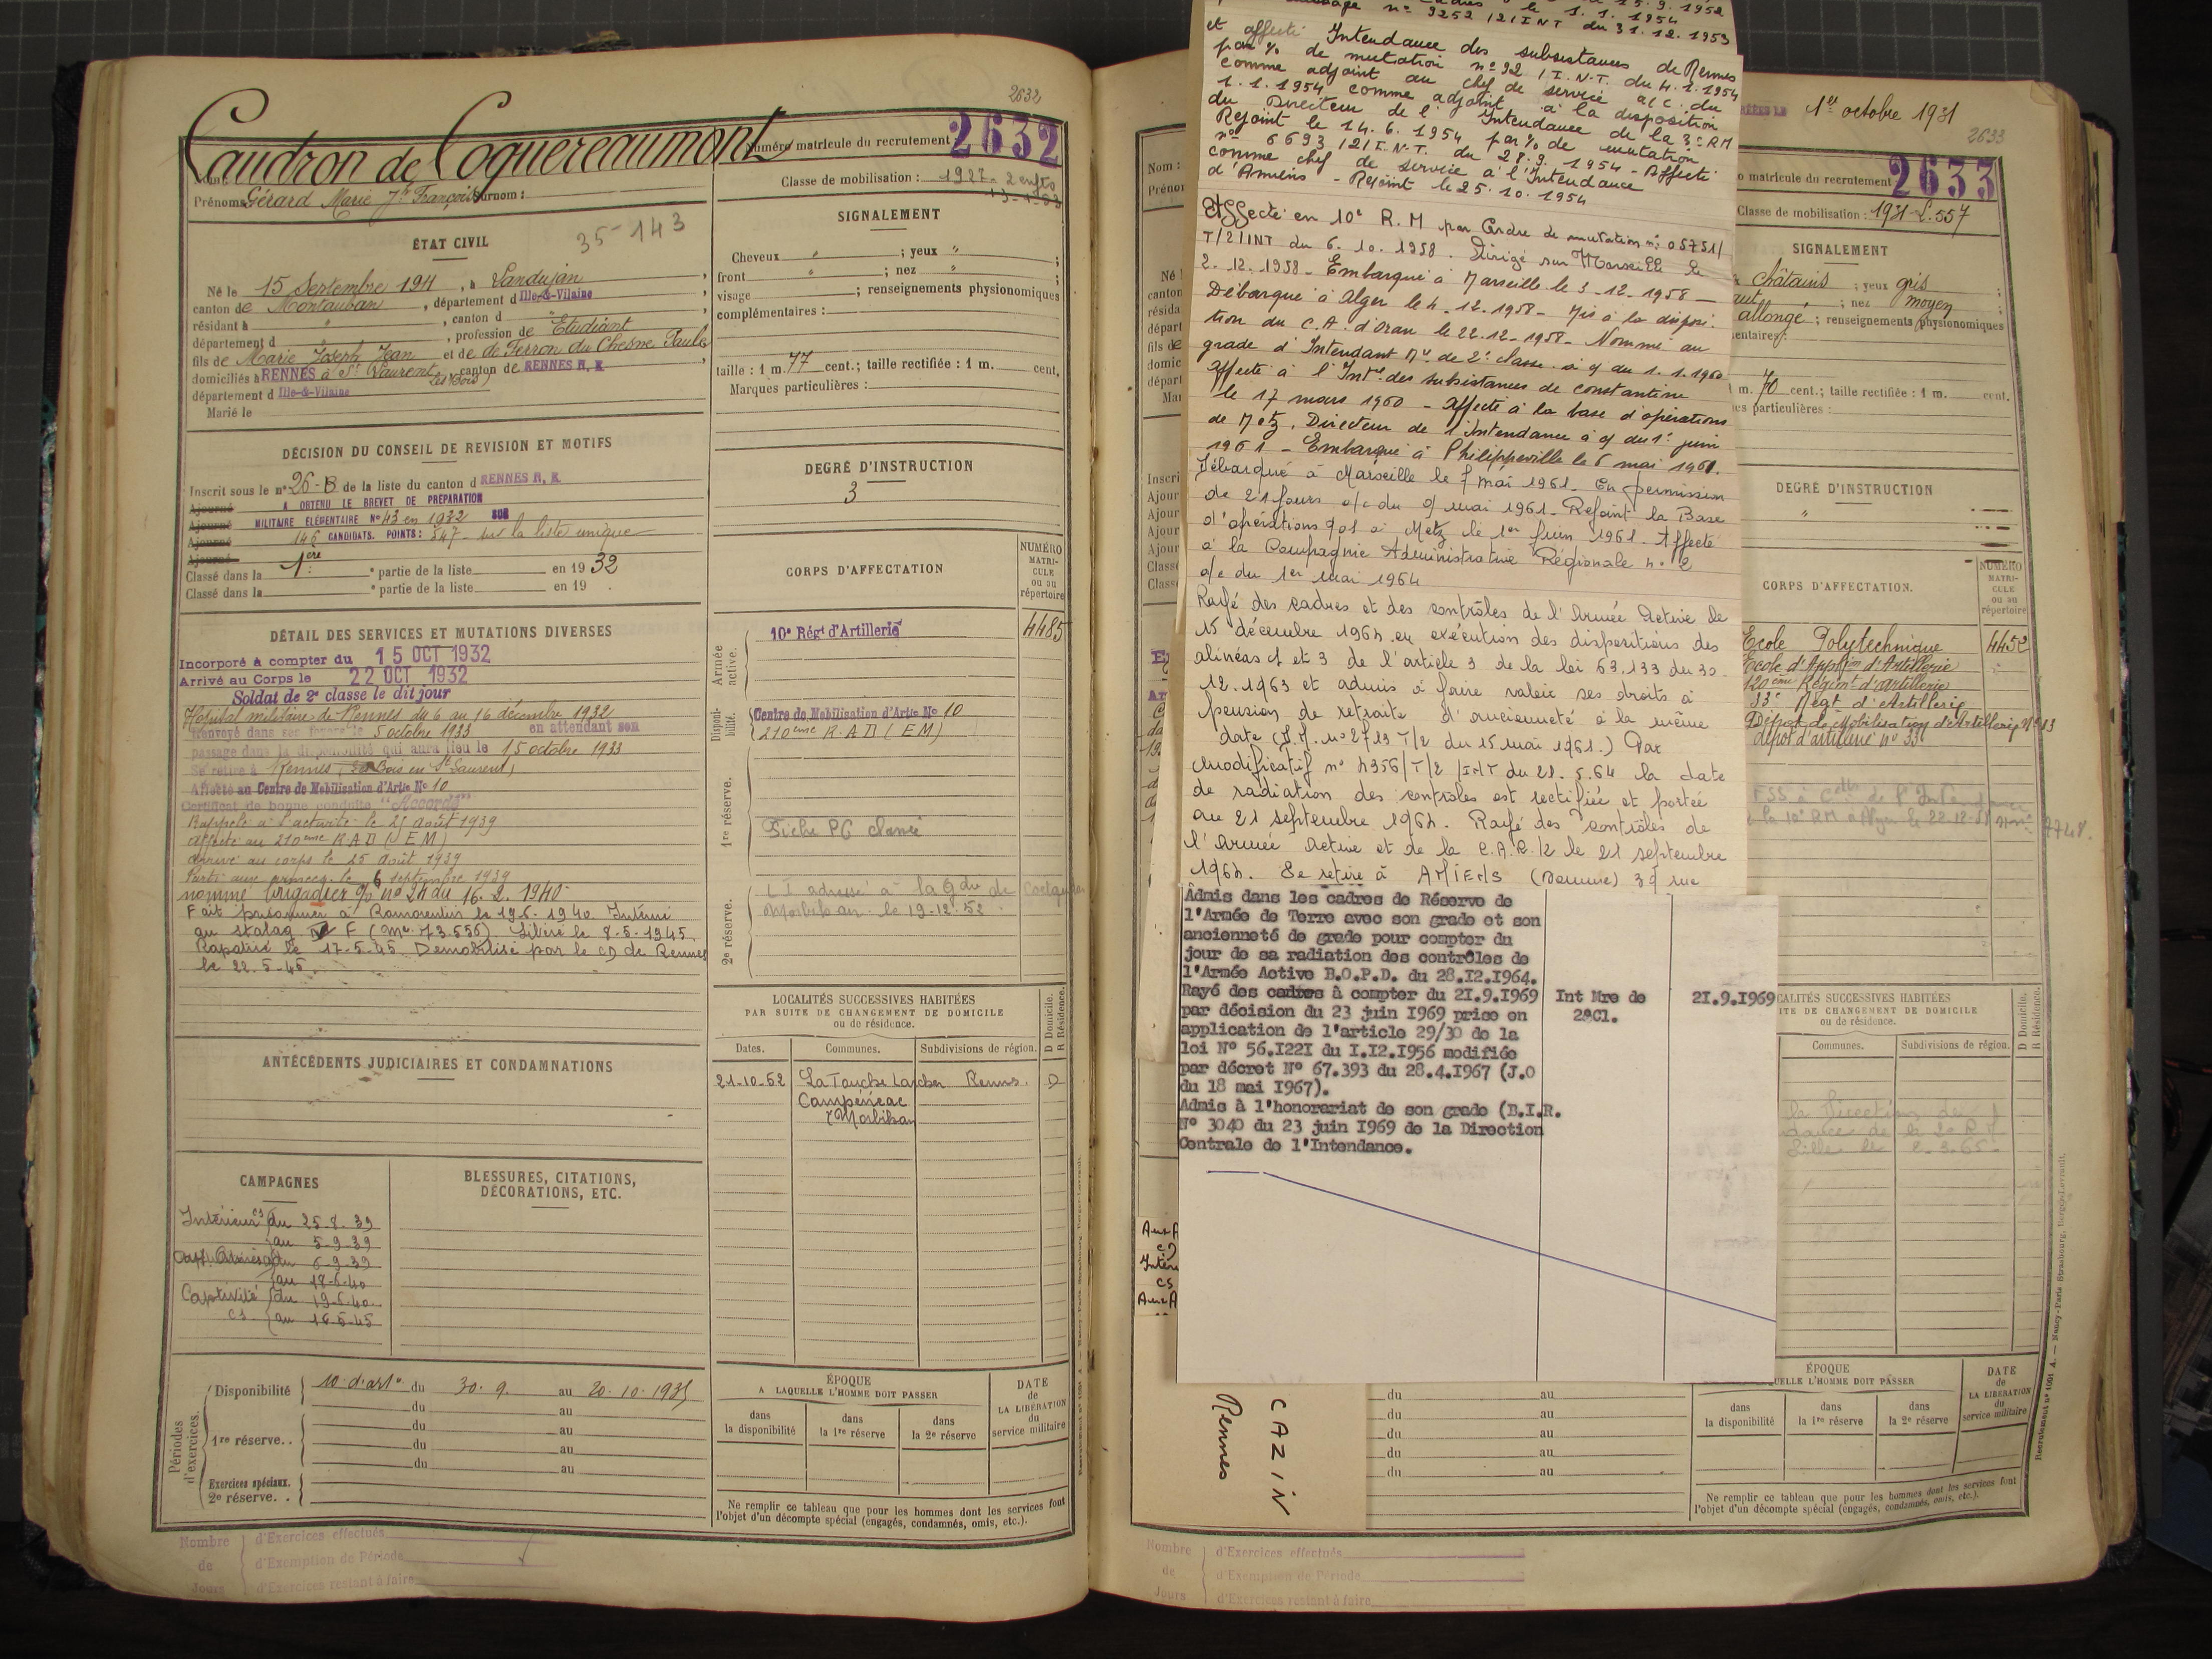 2632
Caudron de Coquereaumont
Numéro matricule du recrutement 2632
Nom
Prénoms Gérard Marie Jh François Surnom :
Classe de mobilisation : 1927 - 2 enfts
ÉTAT CIVIL
35-143
Né le 15 Septembre 1911, à Landujan,
canton de Montauban, département d Ille-&-Vilaine
résidant à " , canton d "
département d , profession de Etudiant
fils de Marie Joseph Jean et de de Ferron du Chesne Paule
domiciliés à RENNES à St Laurent, canton de RENNES N. E.
(les Bois)
département d Ille-&-Vilaine
Marié le
DÉCISION DU CONSEIL DE REVISION ET MOTIFS
Inscrit sous le n° 26-B de la liste du canton d RENNES N. E.
Ajourné A OBTENU LE BREVET DE PRÉPARATION
Ajourné MILITAIRE ÉLÉMENTAIRE N° 43 en 1932 SUR
Ajourné 146 CANDIDATS. POINTS : 547 - sur la liste unique
Ajourné
Classé dans la 1ère partie de la liste en 19 32
Classé dans la e partie de la liste en 19
DÉTAIL DES SERVICES ET MUTATIONS DIVERSES
Incorporé à compter du 15 OCT 1932
Arrivé au Corps le 22 OCT 1932
Soldat de 2e classe le dit jour
Hôpital militaire de Rennes du 6 au 16 décembre 1932
Renvoyé dans ses foyers le 5 octobre 1933 en attendant son
passage dans la disponibilité qui aura lieu le 15 octobre 1933
Se retire à Rennes, Les Bois en St Laurent,
Affecté au Centre de Mobilisation d'Artie N° 10
Certificat de bonne conduite "Accordé"
Rappelé à l'activité le 25 août 1939
affecté au 210ème R.A.D (EM)
Arrivé au corps le 25 août 1939
Parti aux armées le 6 septembre 1939
nommé brigadier % n° 24 du 16. 2. 1940
Fait prisonnier à Romorentin le 19.6. 1940 Interné
au stalag F (Mle 73.556). Libéré le 8-5-1945
Rapatrié le 17-5-45. Démobilisé par le CD de Rennes
le 22. 5-45.
ANTÉCÉDENTS JUDICIAIRES ET CONDAMNATIONS
CAMPAGNES
Intérieur CS du 25.8.39
au 5-9-39
Aux Armées du 6-9-39
au 18-6-40
Captivité du 19-6-40
CS au 16-5-45
BLESSURES, CITATIONS,
DÉCORATIONS, ETC.
Périodes d'exercices.
Disponibilité 10e d'artie du 30. 9. au 20. 10. 1935
du au
1re réserve. . du au
du au
du au
Exercices spéciaux.
2e réserve. .
Nombre de Jours
d'Exercices effectués
d'Exemption de Période
d'Exercices restant à faire
SIGNALEMENT
Cheveux " ; yeux " ;
front " ; nez " ;
visage ; renseignements physionomiques
complémentaires :
taille : 1 m. 77 cent.; taille rectifiée : 1 m. cent.
Marques particulières :
DEGRÉ D'INSTRUCTION
3
CORPS D'AFFECTATION
NUMÉRO
MATRI-
CULE
ou au
répertoire
Armée active.
10e Régt d'Artillerie 4485
Disponi-bilité.
Centre de Mobilisation d'Artie N° 10
210ème R.A.D (EM)
1re réserve.
Fiche PG classée
2e réserve.
adressé à la Gdie de Coetquidan
Morbihan le 19-12-52
LOCALITÉS SUCCESSIVES HABITÉES
PAR SUITE DE CHANGEMENT DE DOMICILE
ou de résidence.
D Domicile.
R Résidence.
Dates. Communes. Subdivisions de région.
21-10-52 La Touche Larcher Rennes. D
Campénéac
Morbihan
ÉPOQUE
A LAQUELLE L'HOMME DOIT PASSER
dans la disponibilité
dans la 1re réserve
dans la 2e réserve
DATE
de
LA LIBÉRATION
du
service militaire
Ne remplir ce tableau que pour les hommes dont les services font
l'objet d'un décompte spécial (engagés, condamnés, omis, etc.).
15. 9. 1952
le 1. 1. 1954
n° 9252 /2/INT du 31. 12. 1953
et affecté Intendance des subsistances de Rennes
par % de mutation n° 92 / I.N.T. du 4. 1. 1954
comme adjoint au chef de service a/c. du
1. 1. 1954 comme adjoint à la disposition
du Directeur de l'Intendance de la 3e RM
Rejoint le 14. 6. 1954 par % de mutation
n° 6693 /2/I.N.T. du 28. 9. 1954 - Affecté
comme chef de service à l'Intendance
d'Amiens - Rejoint le 25. 10. 1954
Affecté en 10e R.M par Ordre de mutation n° 05751/
T/2/INT du 6. 10. 1958. Dirigé sur Marseille le
2. 12. 1958 - Embarqué à Marseille le 3-12-1958 -
Débarqué à Alger le 4. 12. 1958 - Mis à la disposi-
tion du C.A. d'Oran le 22-12-1958 - Nommé au
grade d'Intendant Mre de 2e classe à c/ du 1. 1. 1960
Affecté à l'Intce des subsistances de Constantine
le 17 mars 1960 - Affecté à la base d'opérations
de Metz, Directeur de l'Intendance à c/ du 1er juin
1961 - Embarqué à Philippeville le 6 mai 1961.
Débarqué à Marseille le 7 mai 1961 - En permission
de 21 jours a/c du 9 mai 1961. Rejoint la Base
d'opérations 901 à Metz le 1er juin 1961. Affecté
à la Compagnie Administrative Régionale n° 2
a/c du 1er mai 1964
Rayé des cadres et des contrôles de l'Armée Active le
15 décembre 1964 en exécution des dispositions des
alinéas 1 et 3 de l'article 3 de la loi 63.133 du 30.
12. 1963 et admis à faire valoir ses droits à
pension de retraite d'ancienneté à la même
date (D.M. n° 2713 T/2 du 15 mai 1961.) Par
Modificatif n° 4356/T/2/INT du 28. 5.64 la date
de radiation des contrôles est rectifiée et portée
au 21 septembre 1964. Rayé des contrôles de
l'Armée Active et de la C.A.R./2 le 21 septembre
1964. Se retire à AMIENS (Somme) 39 rue
Admis dans les cadres de Réserve de
l'Armée de Terre avec son grade et son
ancienneté de grade pour compter du
jour de sa radiation des contrôles de
l'Armée Active B.O.P.D. du 28.I2.I964.
Rayé des cadres à compter du 2I.9.I969 Int Mre de 2I.9.I969
par décision du 23 juin I969 prise en 2eCl.
application de l'article 29/30 de la
loi N° 56.I22I du I.I2.I956 modifiée
par décret N° 67.393 du 28.4.I967 (J.O
du 18 mai I967).
Admis à l'honorariat de son grade (B.I.R.
N° 3040 du 23 juin I969 de la Direction
Centrale de l'Intendance.
CAZIN
Rennes
1er octobre 1931
2633
Nom :
Prénom
o matricule du recrutement 2633
Classe de mobilisation : 1931 L. 557
SIGNALEMENT
châtains ; yeux gris ;
; nez moyen ;
allongé ; renseignements physionomiques
entaires :
m. 70 cent.; taille rectifiée : 1 m. cent.
es particulières :
DEGRÉ D'INSTRUCTION
"
CORPS D'AFFECTATION.
NUMÉRO
MATRI-
CULE
ou au
répertoire
Ecole Polytechnique 4452
Ecole d'Applion d'Artillerie
120ème Régiment d'artillerie
33e Régt d'Artillerie
Dépôt de Mobilisation d'Artillerie N° 13
dépôt d'artillerie n° 33
CALITÉS SUCCESSIVES HABITÉES
ITE DE CHANGEMENT DE DOMICILE
ou de résidence.
D Domicile.
R Résidence.
Communes. Subdivisions de région.
du au
du au
du au
du au
du au
ÉPOQUE
UELLE L'HOMME DOIT PASSER
dans la disponibilité
dans la 1re réserve
dans la 2e réserve
DATE
de
LA LIBÉRATION
du
service militaire
Ne remplir ce tableau que pour les hommes dont les services font
l'objet d'un décompte spécial (engagés, condamnés, omis, etc.).
Recrutement n° 1001 A. — Nancy-Paris-Strasbourg, Berger-Levrault.
Nombre de Jours
d'Exercices effectués
d'Exemption de Période
d'Exercices restant à faire